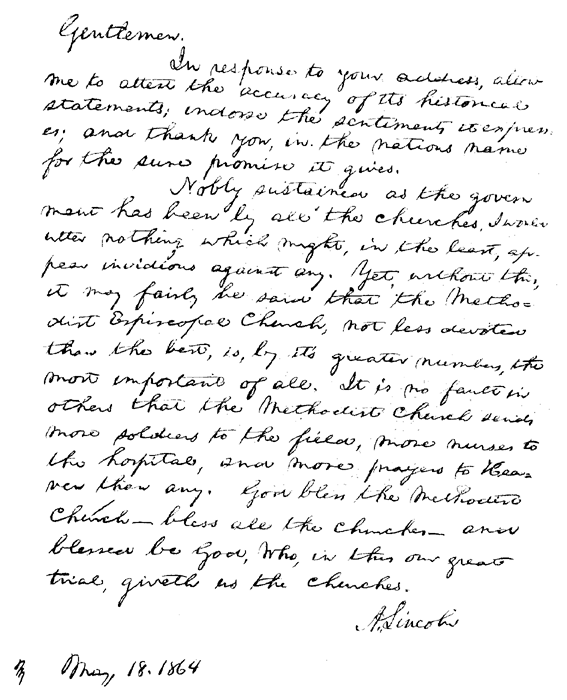 Gentlemen.
In response to your address, allow
me to attest the accuracy of its historical
statements; indorse the sentiments it express-
es; and thank you, in the nations name
for the sure promise it gives.
Nobly sustained as the govern
ment has been by all the churches, I would
utter nothing which might, in the least, ap-
pear invidious against any. Yet, without this,
it may fairly be said that the Metho-
dist Episcopal Church, not less devoted
than the best, is, by its greater numbers, the
most important of all. It is no fault in
others that the Methodist Church sends
more soldiers to the field, more nurses to
the hospital, and more prayers to Hea-
ven than any. God bless the Methodist
Church— bless all the churches— and
blessed be God, Who, in this our great
trial, giveth us the churches.
A. Lincoln
May, 18. 1864